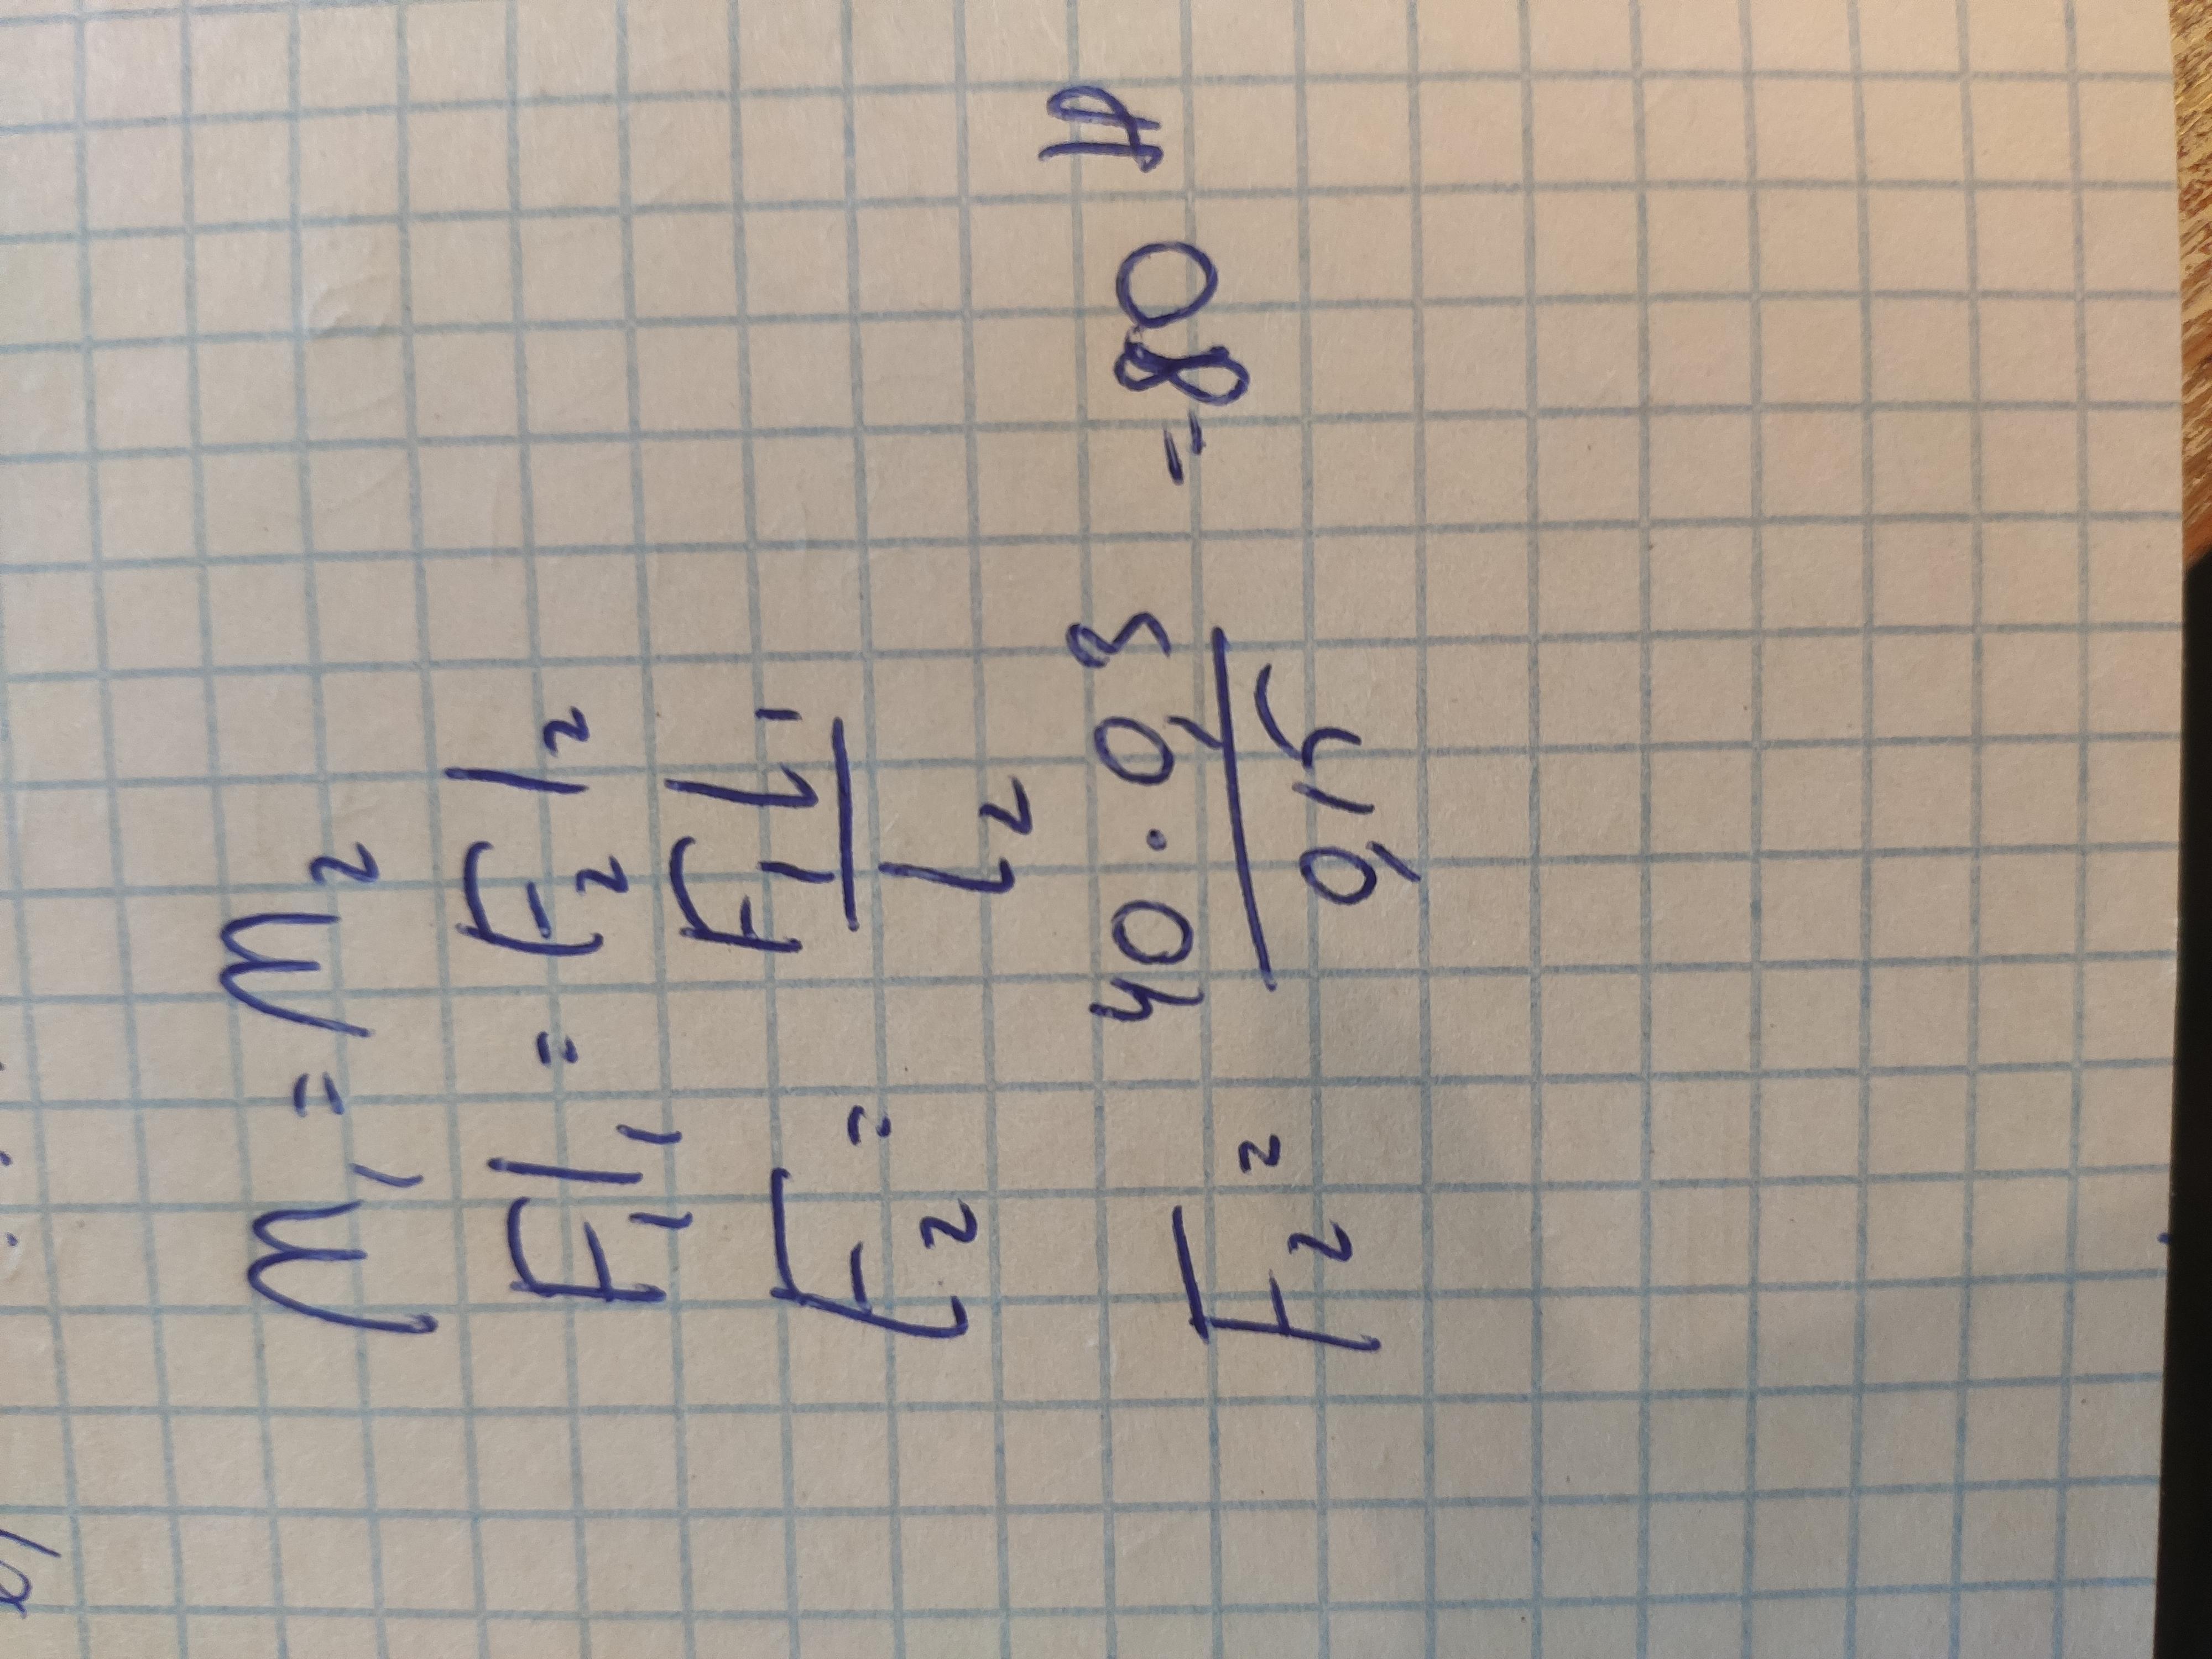 M₁ = M₂
F₁ l₁ = F₂ l₂
F₂ = F₁ l₁ / l₂
F₂ = 40 · 0,3 / 0,15 = 80 Н